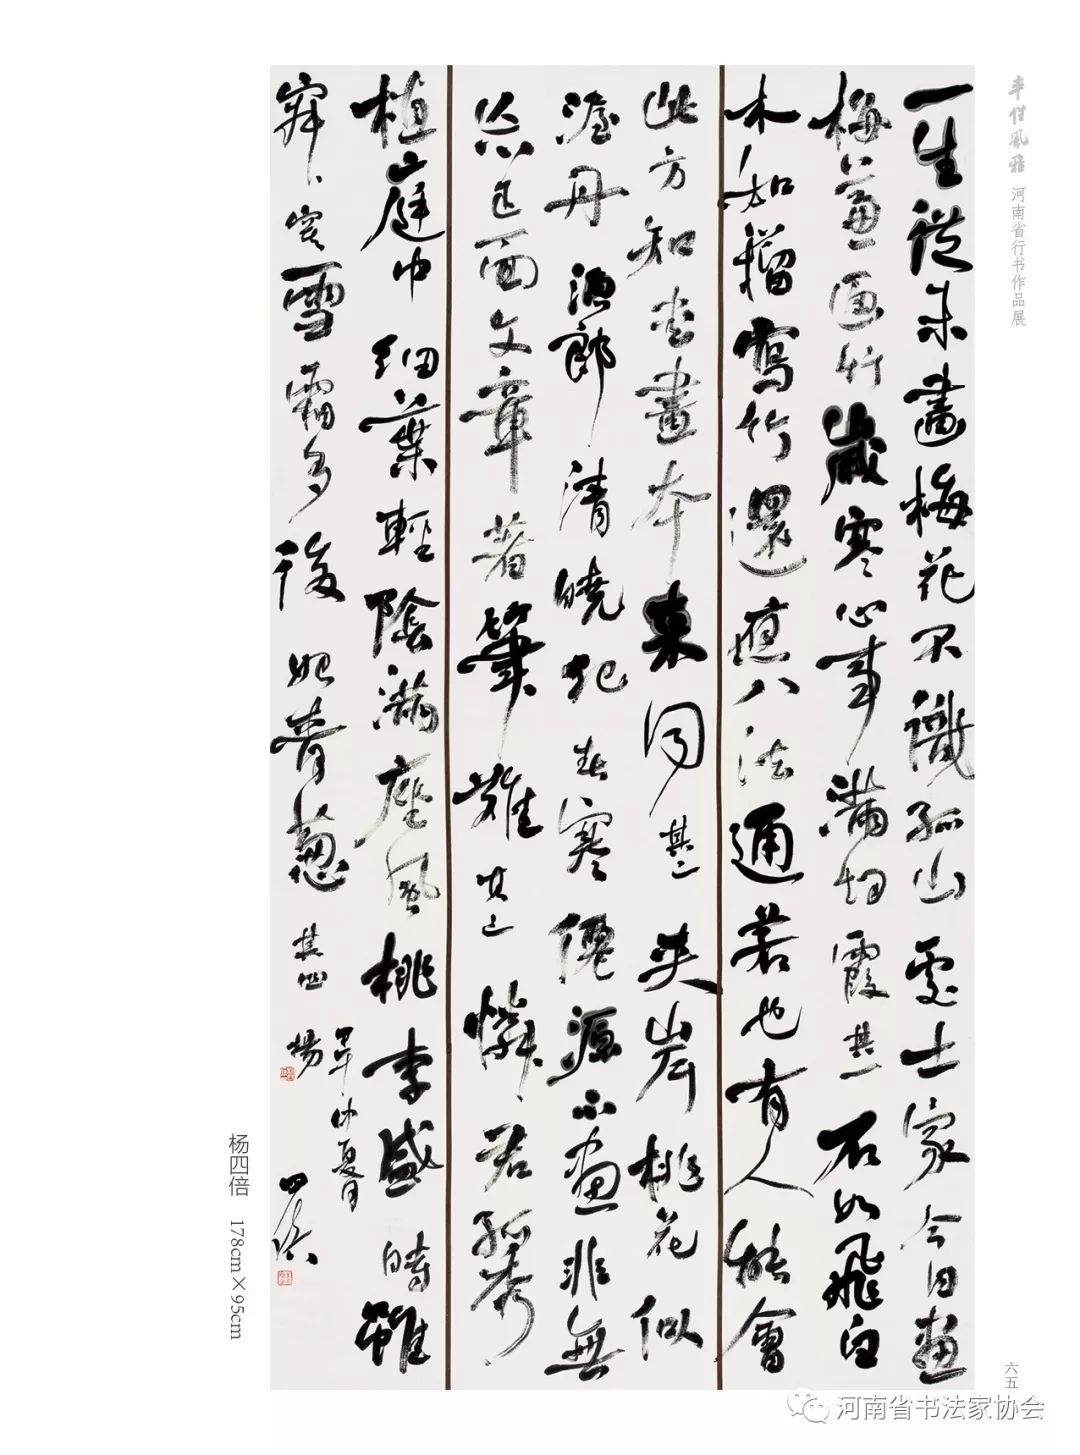 河南省行书作品展
一生從未畫梅花不識孤山處士家今日畫
梅兼画竹歲寒心事滿烟霞其一石如飛白
木如籀寫竹還應八法通若也有人能會
此方知書畫本來同其二夾岸桃花似
渥丹漁郎清曉犯春寒僊源不畫非無
正面文章著筆難其三憐君孤秀
植庭中細葉輕陰滿座風桃李盛時雖
寂寞雪霜多後始青蔥其四
年仲夏月
楊四倍
杨四倍 178cm×95cm
六五
河南省书法家协会